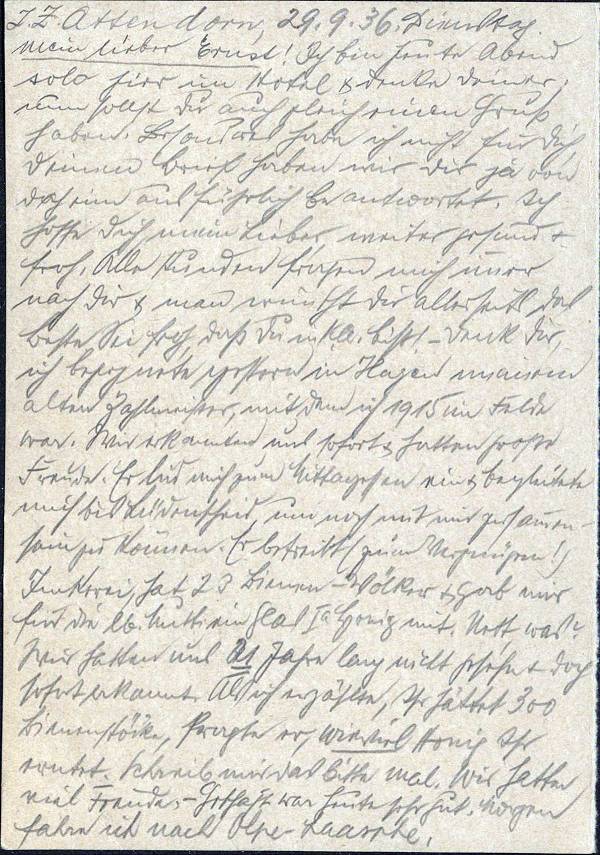 Z.Z. Attendorn, 29.9.36. Dienstag.
Mein lieber Ernst! Ich bin heute Abend
solo hier im Hotel & denke Deiner,
nun sollst Du auch gleich einen Gruß
haben. Besonderes habe ich nicht für Dich
Deinen Brief haben wir Dir ja von
daheim ausführlich beantwortet. Ich
hoffe Dich mein Lieber weiter gesund &
froh. Alle Kunden fragen mich immer
nach Dir & man wünscht Dir allerseits das
Beste. Sei froh daß Du in bist – Denk Dir,
ich begegnete gestern in Hagen meinem
alten Zahlmeister, mit dem ich 1915 im Felde
war. Wir erkannten uns sofort & hatten große
Freude. Er lud mich zum Mittagessen ein & begleitete
mich bis Lüdenscheid, um noch mit mir zusammen-
sein zu können. Er betreibt (zum Vergnügen!)
Imkerei, hat 23 Bienen-Völker & gab mir
für die lb. Mutti ein Glas Ia Honig mit. Nett was?
Wir hatten uns 21 Jahre lang nicht gesehen & doch
sofort erkannt. Als ich erzählte, Ihr hättet 300
Bienenstöcke, fragte er, wieviel Honig Ihr
erntet. Schreib mir das bitte mal. Wir hatten
viel Freude. – Geschäft war heute sehr gut. Morgen
fahre ich nach Olpe-Laasphe.